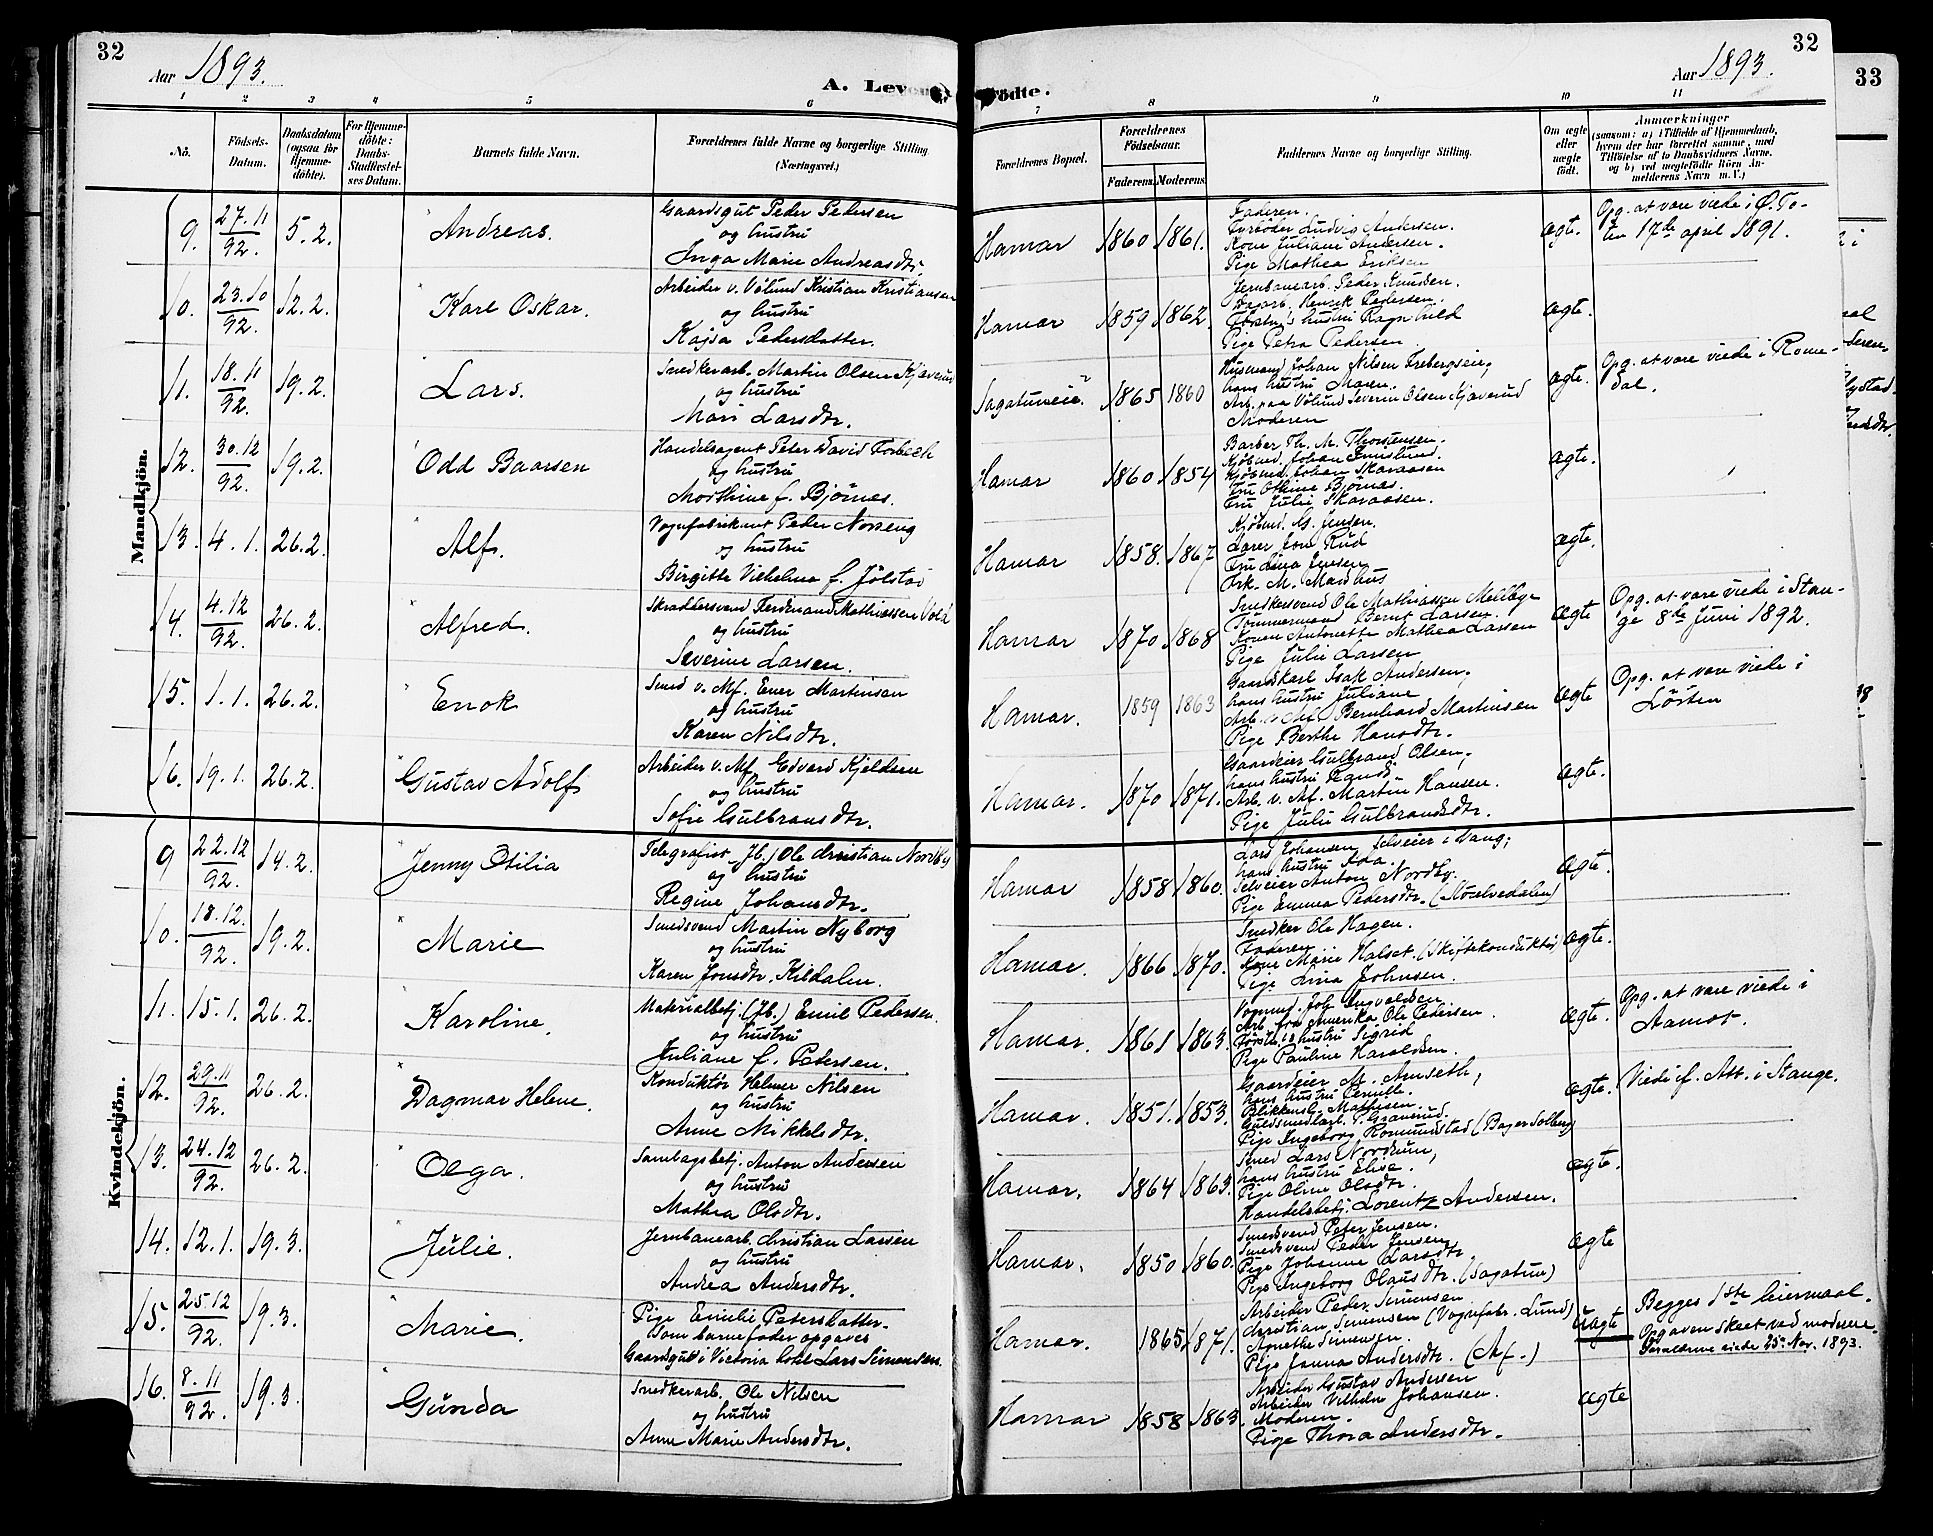 32
Aar 1893.
A. Leve
1 2 3 4 5 6
No.
Födsels-Datum.
Daabsdatum (ogsaa for Hjemmedöbte).
For Hjemmedöbte: Daabs-Stadfæstelses Datum.
Barnets fulde Navn.
Forældrenes fulde Navne og borgerlige Stilling (Næringsvei.)
Mandkjön.
9. 27.11/92. 5.2. Andreas.
Gaardsgut Peder Pedersen
og hustru
Inga Marie Andreasdtr.
10. 23.10/92. 12.2. Karl Oskar.
Arbeider v. Vølund Kristian Kristiansen
og hustru
Kajsa Pedersdatter.
11. 18.11/92. 19.2. Lars.
Snedkerarb. Martin Olsen Kjæverud
og hustru
Mari Larsdtr.
12. 30.12/92. 19.2. Odd Baarsen
Handelsagent Peter David Forbech
og hustru
Morthine f. Bjørnes.
13. 4.1. 26.2. Alf.
Vognfabrikant Peder Norseng
og hustru
Birgitte Vilhelma f. Jølstad
14. 4.12/92. 26.2. Alfred.
Skræddersvend Ferdinand Mathiassen Vold
og hustru
Severine Larsen.
15. 1.1. 26.2. Enok
Smed v. Mf. Ener Martinsen
og hustru
Karen Nilsdtr.
16. 19.1. 26.2. Gustav Adolf
Arbeider v. Mf. Edvard Kjeldern
og hustru
Sofie Gulbransdtr.
Kvindekjön.
9 22.12/92. 14.2. Jenny Otilia
Telegrafist (Jb.) Ole Christian Nordby
og hustru
Regine Johansdtr.
10. 18.12./92. 19.2. Marie
Smedsvend Martin Nyborg
og hustru
Karen Jonsdtr. Kildalen.
11. 15.1. 26.2. Karoline.
Materialbetj. (Jb.) Emil Pedersen.
og hustru
Juliane f. Petersen.
12. 29.11/92. 26.2. Dagmar Helene.
Konduktør Helmer Nilsen
og hustru
Anne Mikkelsdtr.
13. 24.12/92. 26.2. Olga.
Samlagsbetj. Anton Andersen
og hustru
Mathea Olsdtr.
14. 12.1. 19.3. Julie.
Jernbanearb. Christian Larsen
og hustru
Andrea Andersdtr.
15. 25.12/92. 19.3. Marie.
Pige Emilie Petersdatter.
Som barnefader opgaves
Gaardsgut i Victoria hotel Lars Simensen.
16. 8.11/92. 19.3. Gunda
Snedkerarb. Ole Nilsen
og hustru
Anne Marie Andersdtr.
32
Aar 1893.
födte.
7 8 9 10 11
Forældrenes Bopæl.
Forældrenes Födselsaar.
Faderens. Moderens.
Faddernes Navne og borgerlige Stilling.
Om ægte eller uægte födt.
Anmærkninger
(saasom: a) i Tilfælde af Hjemmedaab,
hvem der har forrettet samme, med
Tilföielse af to Daabsvidners Navne.
og b) ved uægtefödte Börn An-
melderens Navn m. V.)
Hamar 1860 1861.
Faderen.
Fyrbøder Ludvig Andersen.
Kone Juliane Andersen.
Pige Mathea Eriksen
ægte.
Opg. at være viede i Ø. To-
ten 17de april 1891.
Hamar 1859 1862.
Jernbanearb. Peder Knudsen.
Dagarb. Henrik Pedersen.
Førstn's hustru Ragnhild
Pige Petra Pedersen.
ægte.
Sagatuneie. 1865 1860
Husmand Johan Nilsen Frebergseie,
hans hustru Maren.
Arb. paa Vølund Severin Olsen Kjæverud
Moderen
ægte.
Opg. at være viede i Rome-
dal.
Hamar 1860 1854
Barber Th. M. Thorstensen.
Kjøbmd. Johan
Kjøbmd. Johan Skaraasen
Fru Othine Bjørnes.
Fru Julie Skaraasen.
ægte.
Hamar 1858. 1867
Kjøbmd. G. Jensen.
Lærer Rud
Fru Lina Jensen
Frk. M. Maehus
ægte.
Hamar 1870 1868
Snedkersvend Ole Mathiassen Melby
Tømmermand Bernt Larsen.
Konen Antonette Mathea Larsen
Pige Julie Larsen
ægte
Opg. at være viede i Stan-
ge 8de Juni 1892.
Hamar. 1859 1863
Gaardskarl Isak Andersen,
hans hustru Juliane
Arb. v. Mf. Bernhard Martinsen
Pige Berthe Hansdtr.
ægte
Opg. at være viede i
Løiten
Hamar. 1870 1871.
Gaardeier Gulbrand Olsen,
hans hustru Randi
Arb. v. Mf. Martin Hansen.
Pige Julie Gulbrandsdtr.
ægte.
Hamar 1858 1860.
Lars Johansen, selveier i Vang,
hans hustru Ada.
Selveier Anton Nordby.
Pige Emma Pedersdtr. (Storelvedalen)
ægte.
Hamar. 1866 1870.
Snedker Ole Hagen.
Faderen
Kone Marie Halset. (Skiftekonduktør)
Pige Lina Johnsen.
ægte.
Hamar. 1861 1863.
Vognmd. Joh. Ingvaldsen
Arb. fra Amerika Ole Pedersen.
Førstn's hustru Sigrid
Pige Pauline Haraldsen.
ægte.
Opg. at være viede i
Aamot.
Hamar. 1851. 1853.
Gaardeier M. Amseth,
hans hustru Pernille.
Blikkensl. Mathisen.
Guldsmedlærl. T. Granerud.
Pige Ingeborg Romundstad (Bager Solberg)
ægte.
Viede if. Att. i Stange.
Hamar. 1864 1863.
Smed Lars Nordrum,
hans hustru Elise.
Pige Oline Olsdtr.
Handelsbetj. Lorentz Andersen.
ægte.
Hamar. 1850 1860.
Smedsvend Peter Jensen.
Smedsvend Peder Jensen
Pige Johanne Larsdtr.
Pige Ingeborg Olausdtr. (Sagatun)
ægte
Hamar. 1865 1871.
Arbeider Peder Simensen
Christian Simensen (Vognfabr. Lund)
Agnethe Simensen.
Pige Janna Andersdtr. (Mf.)
uægte
Begges 1ste leiermaal.
Opgaven skeet ved moderen.
Forældrene viede 25 Nov. 1893.
Hamar 1858 1863.
Arbeider Gustav Andersen
Arbeider Vilhelm Johansen.
Moderen.
Pige Thora Andersdtr.
ægte
33